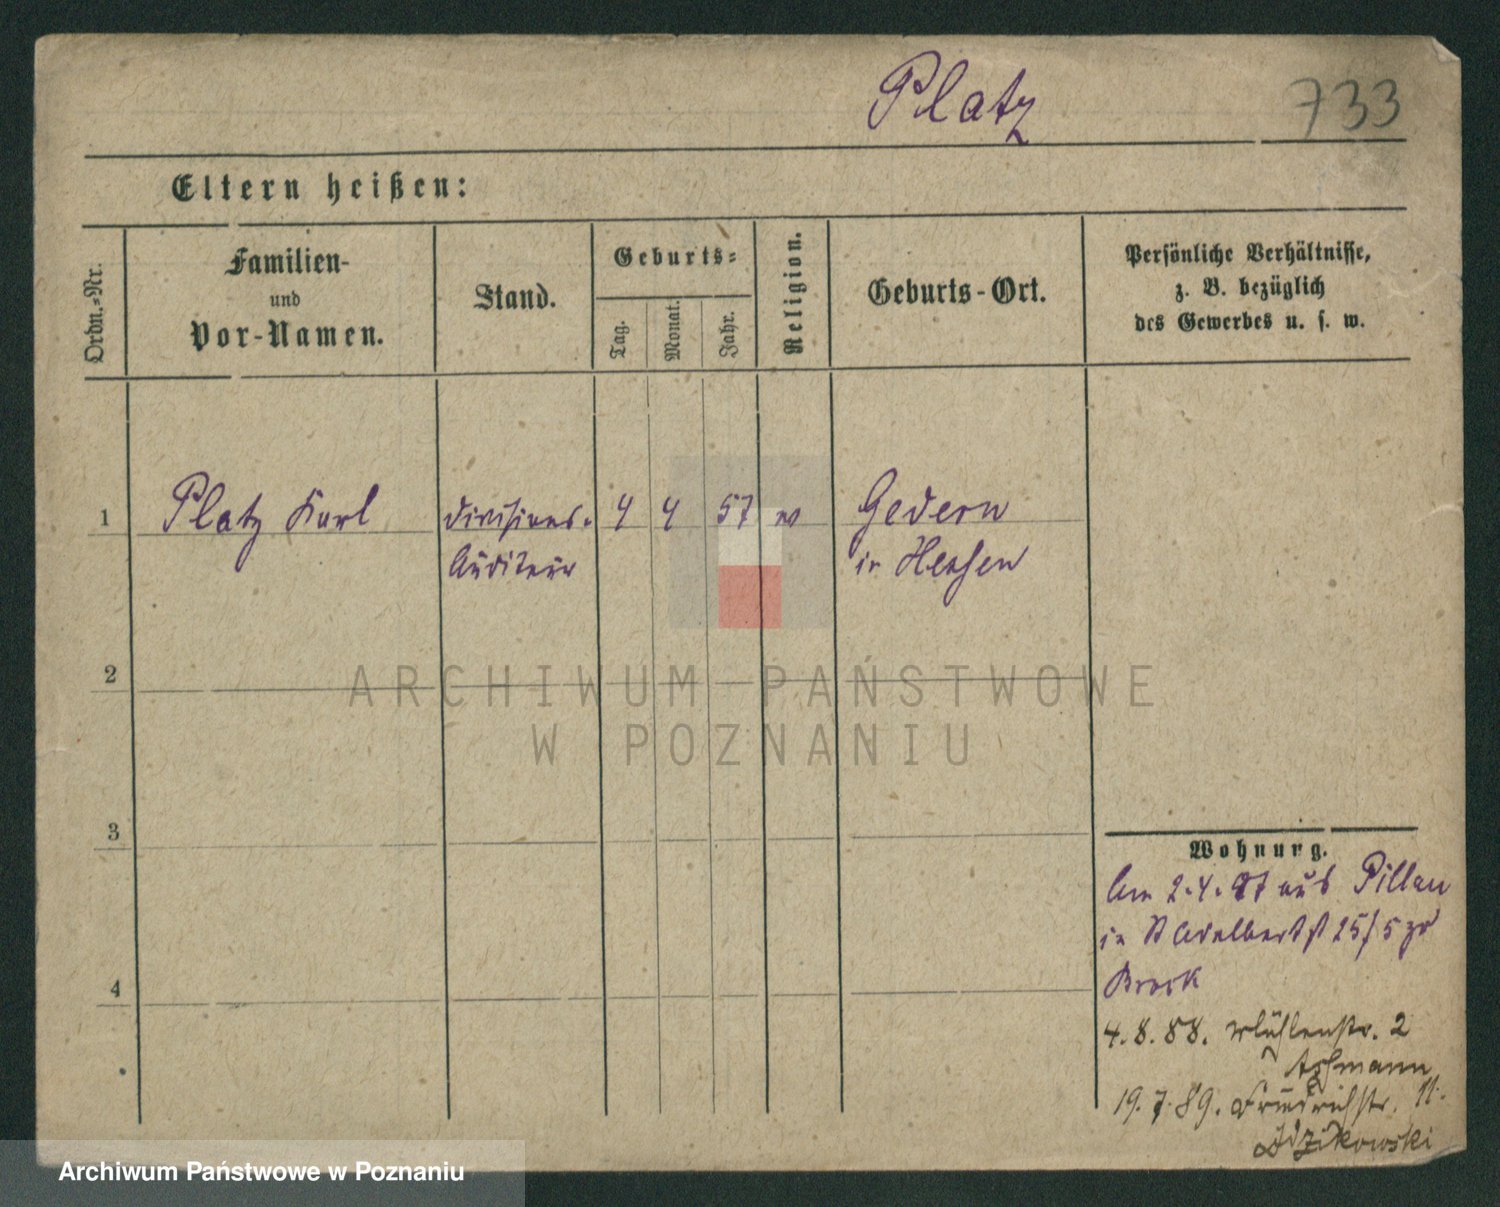 Platz 733
Eltern heißen:
Ordn.-Nr.
Familien-
und
Vor-Namen.
Stand.
Geburts-
Tag. Monat. Jahr.
Religion.
Geburts-Ort.
Persönliche Verhältnisse,
z. B. bezüglich
des Gewerbes u. s. w.
1 Platz Karl Divisions- 4 4 57 Gedern
Auditeur in Hessen
2
3
4
ARCHIWUM PAŃSTWOWE
W POZNANIU
Wohnung.
Am 2.4.87 aus Pillau
in St Adalbertst 25/5
4.8.88. Mühlenstr. 2
Aßmann
19.7.89. Friedrichstr. 11.
Idzikowski
Archiwum Państwowe w Poznaniu